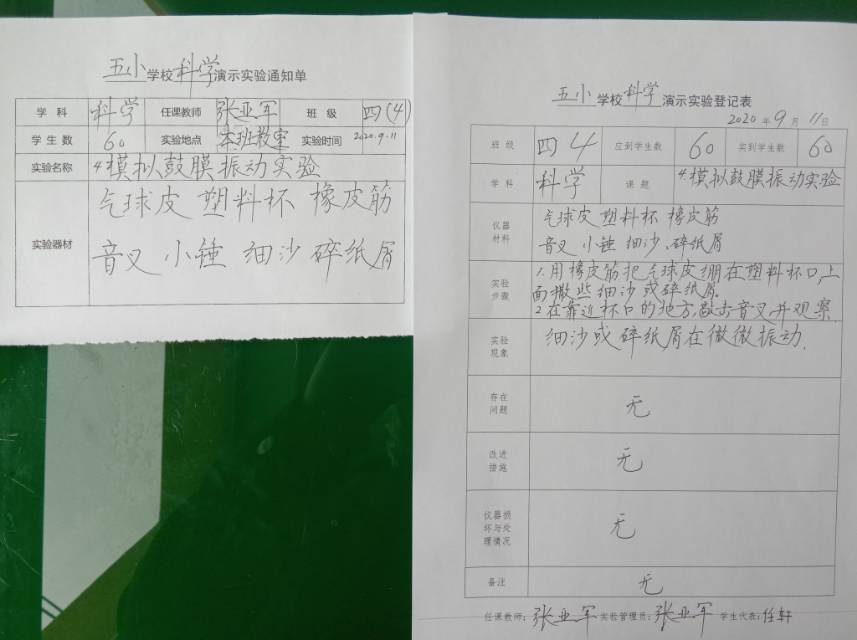 五小学校科学演示实验通知单
学科 科学 任课教师 张亚军 班级 四(4)
学生数 60 实验地点 本班教室 实验时间 2020.9.11
实验名称 4.模拟鼓膜振动实验
实验器材 气球皮 塑料杯 橡皮筋
音叉 小锤 细沙 碎纸屑
五小学校科学演示实验登记表
2020年9月11日
班级 四4 应到学生数 60 实到学生数 60
学科 科学 课题 4.模拟鼓膜振动实验
仪器材料 气球皮 塑料杯 橡皮筋
音叉 小锤 细沙、碎纸屑
实验步骤 1.用橡皮筋把气球皮绷在塑料杯口,上
面撒些细沙或碎纸屑.
2.在靠近杯口的地方,敲击音叉,并观察.
实验现象 细沙或碎纸屑在微微振动.
存在问题 无
改进措施 无
仪器损坏与处理情况 无
备注 无
任课教师:张亚军 实验管理员:张亚军 学生代表:任轩